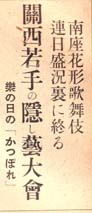 南座花形歌舞伎
連日盛況裏に終る
關西若手の隱し藝大會
樂の日の「かつぽれ」